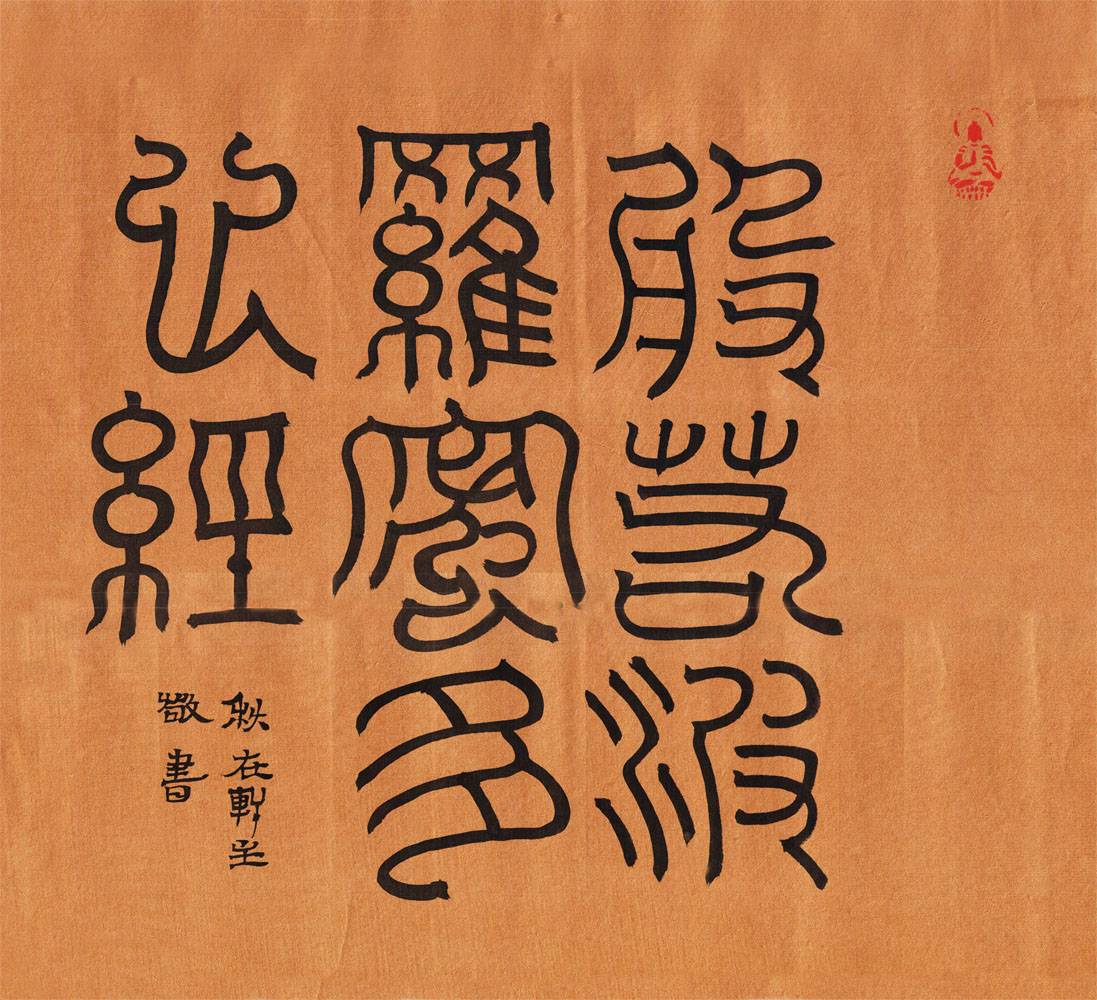 般若波
羅蜜多
心經
秋在軒主
敬書